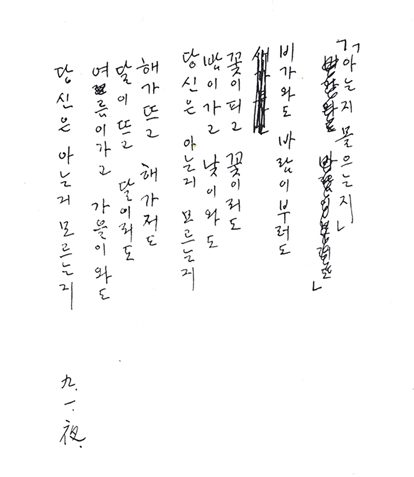 「아는지 몰으는지」
비가와도 바람이부러도
꽃이피고 꽃이지도
밤이가고 낮이와도
당신은 아는지 모르는지
해가뜨고 해가저도
달이뜨고 달이지도
여름이가고 가을이와도
당신은 아는지 모르는지
九.一.夜.